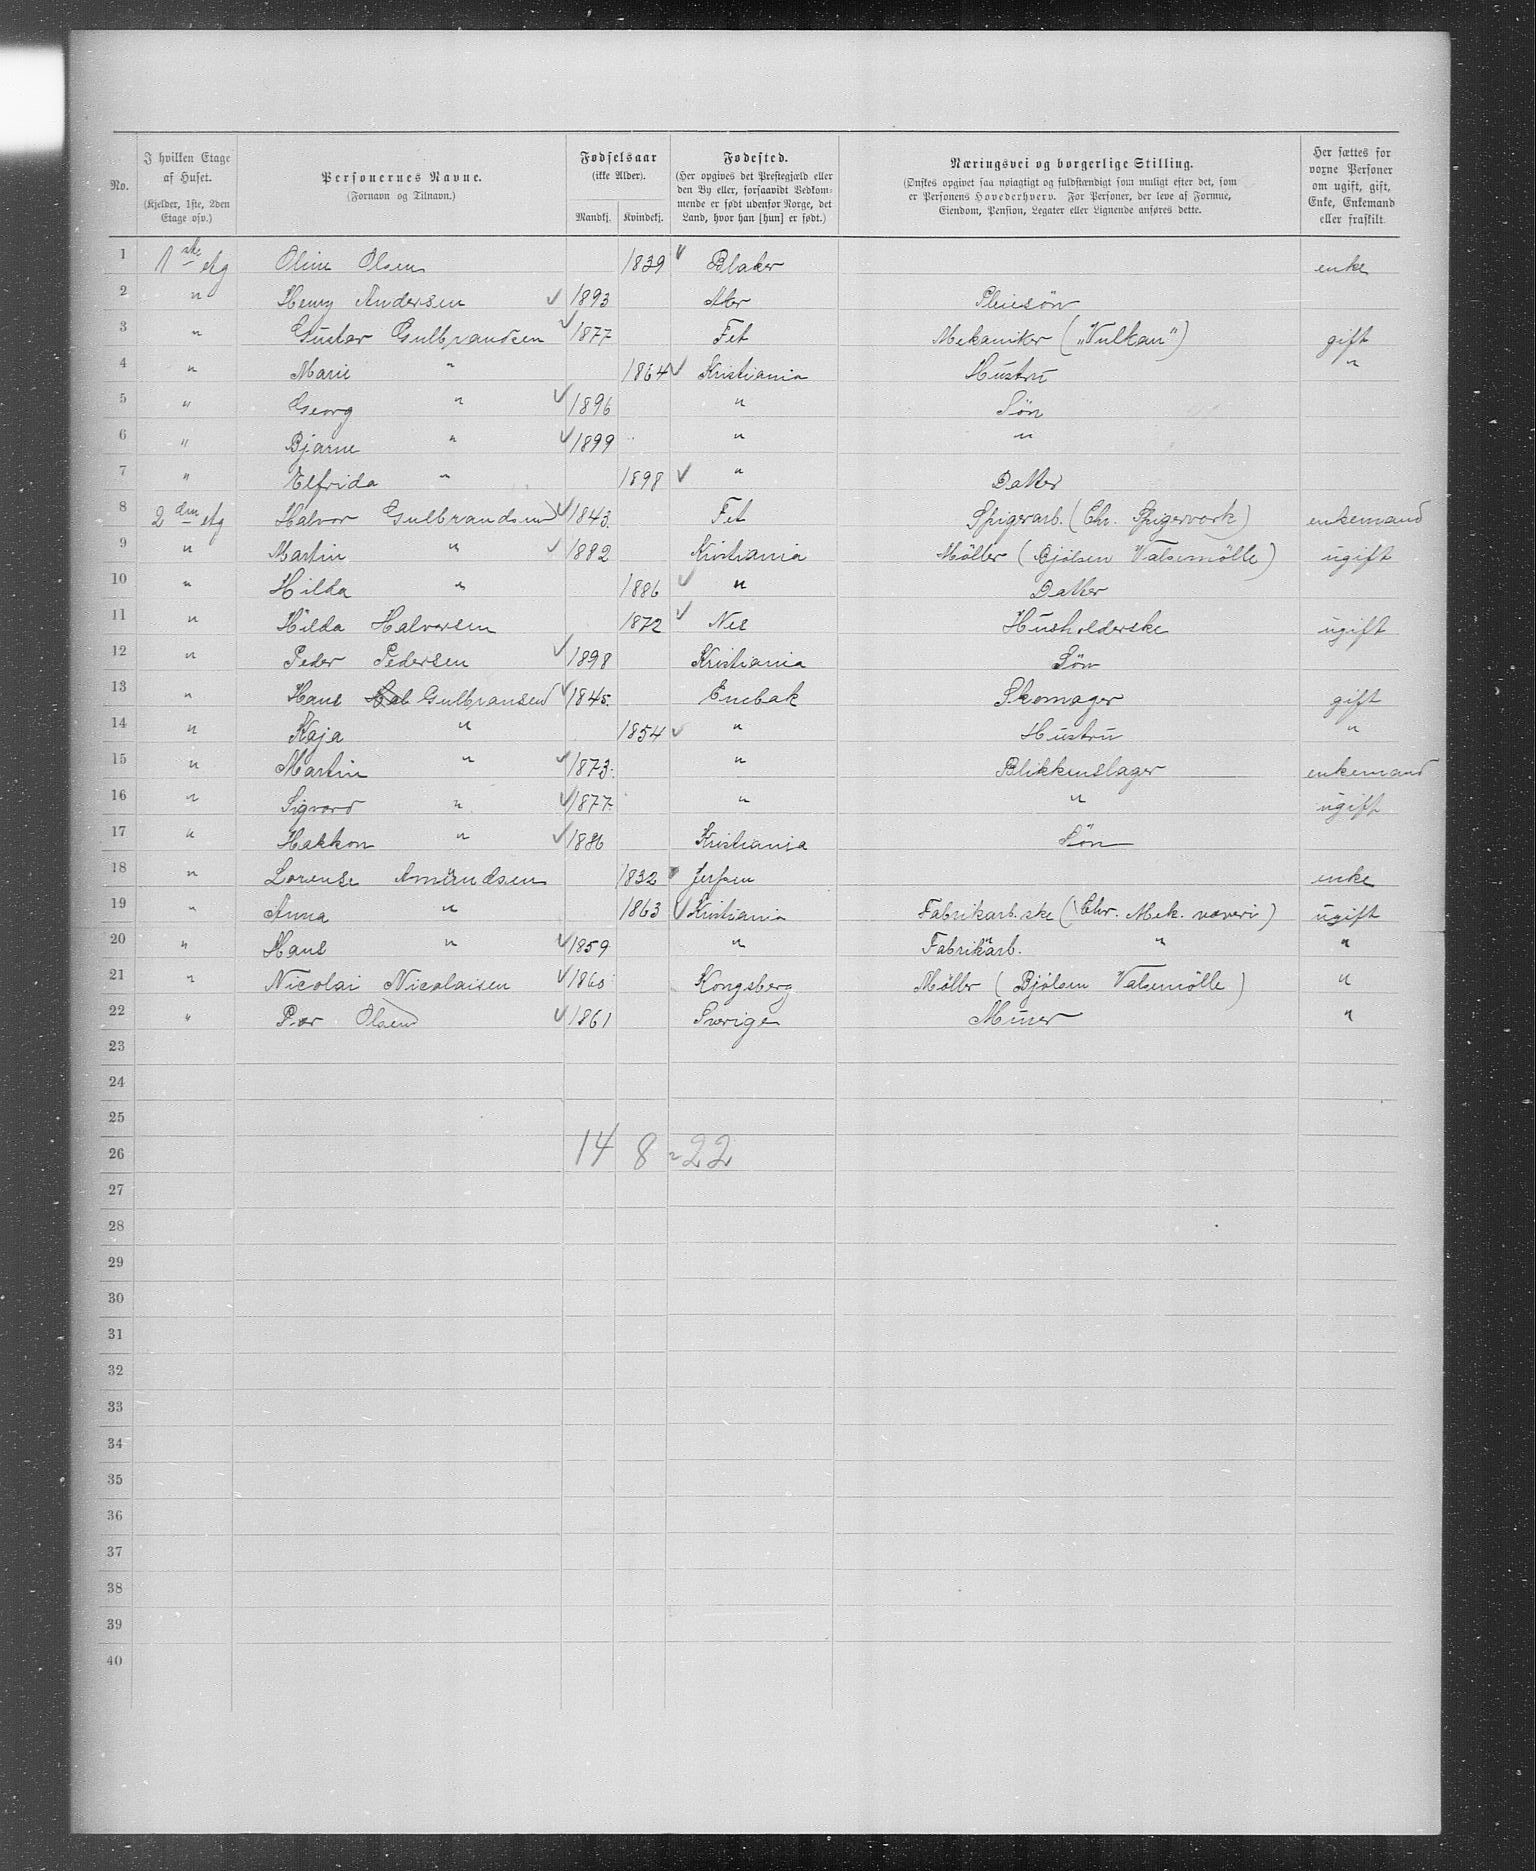 No. I hvilken Etage af Huset. (Kjelder, 1ste, 2den Etage osv.) Personernes Navne. (Fornavn og Tilnavn.) Fødselsaar (ikke Alder). Mandkj. Kvindekj. Fødested. (Her opgives det Prestegjæld eller den By eller, forsaavidt Vedkommende er født udenfor Norge, det Land, hvor han [hun] er født.) Næringsvei og borgerlige Stilling. (Ønskes opgivet saa nøiagtigt og fuldstændigt som muligt efter det, som er Personens Hovederhverv. For Personer, der leve af Formue, Eiendom, Pension, Legater eller Lignende anføres dette. Her sættes for voxne Personer om ugift, gift, Enke, Enkemand eller fraskilt.
1 1ste etg Oline Olsen 1839 ✓ Blaker enke
2 " Henry Andersen ✓ 1893 Aker Pleiesön
3 " Gustav Gulbrandsen ✓ 1877 Fet Mekaniker ("Vulkan") gift
4 " Marie " 1864 ✓ Kristiania Hustru "
5 " Georg " ✓ 1896 " Sön
6 " Bjarne " ✓ 1899 " "
7 " Elfrida " 1898 ✓ " Datter
8 2den etg Halvor Gulbrandsen ✓ 1843 Fet Spigerarb. (Chr. Spigerverk) enkemand
9 " Martin " ✓ 1882 Kristiania Möller (Bjölsen Valsemölle) ugift
10 " Hilda " 1886 ✓ " Datter
11 " Hilda Halvorsen 1872 ✓ Nes Husholderske ugift
12 " Peder Pedersen ✓ 1898 Kristiania Sön
13 " Hans Gulbransen ✓ 1845 Enebak Skomager gift
14 " Kaja " 1854 ✓ " Hustru "
15 " Martin " ✓ 1873 " Blikkenslager enkemand
16 " Sigvard " ✓ 1877 " " ugift
17 " Hakkon " ✓ 1886 Kristiania Sön
18 " Lorense Amundsen 1832 enke
19 " Anna " 1863 ✓ Kristiania Fabrikarb.ske (Chr. Mek. væveri) ugift
20 " Hans " ✓ 1859 " Fabrikarb. " "
21 " Nicolai Nicolaisen ✓ 1860 Kongsberg Möller (Bjölsen Valsemölle) "
22 " Per Olsen ✓ 1861 Sverige Murer "
23
24
25
26 14 8 = 22
27
28
29
30
31
32
33
34
35
36
37
38
39
40